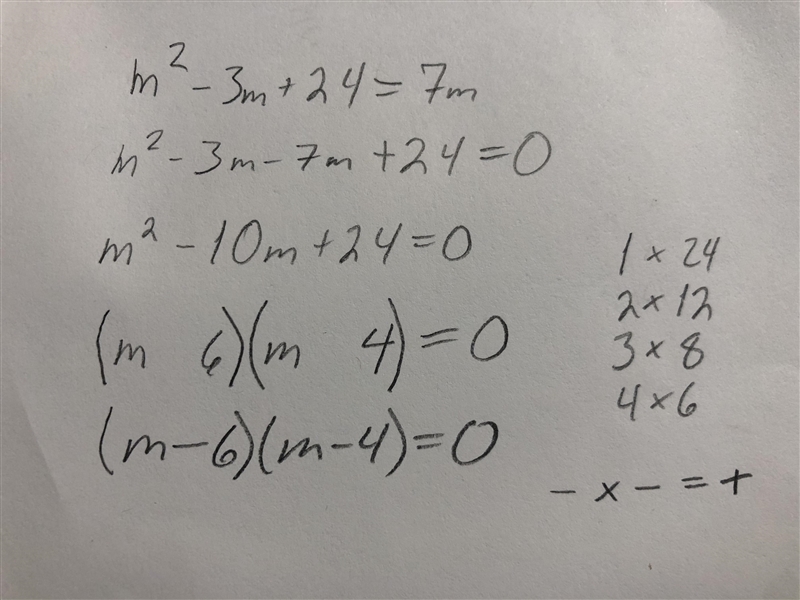 m² - 3m + 24 = 7m
m² - 3m - 7m + 24 = 0
m² - 10m + 24 = 0
(m 6)(m 4) = 0
(m - 6)(m - 4) = 0
1 × 24
2 × 12
3 × 8
4 × 6
- × - = +